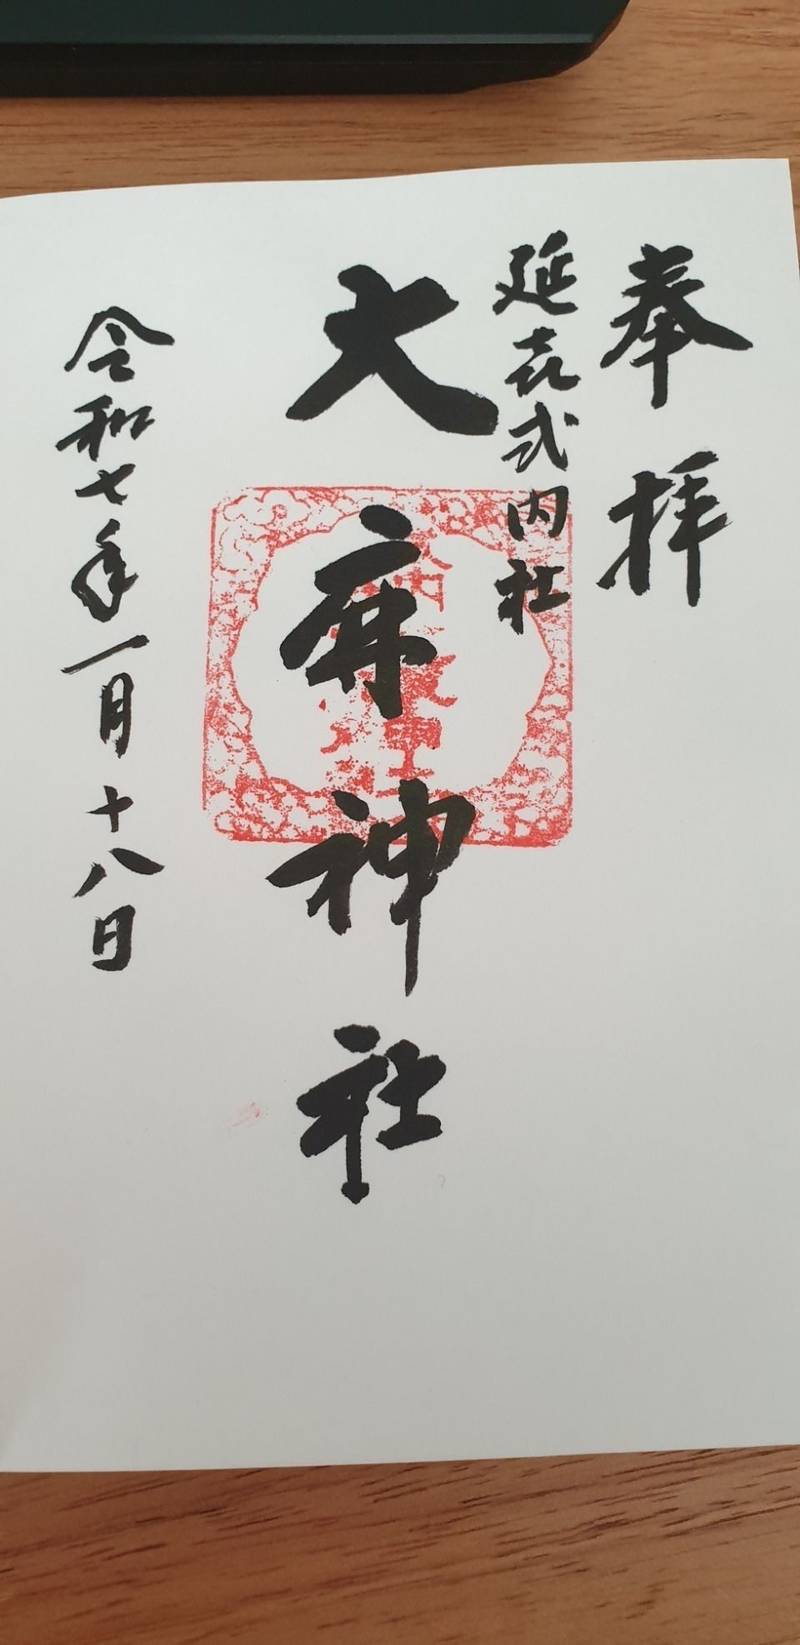 奉拝
延㐂式内社
大麻神社
令和七年一月十八日